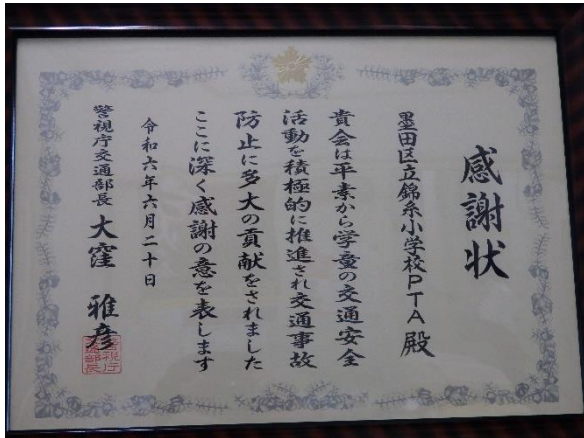 感謝状
墨田区立錦糸小学校PTA殿
貴会は平素から学童の交通安全
活動を積極的に推進され交通事故
防止に多大の貢献をされました
ここに深く感謝の意を表します
令和六年六月二十日
警視庁交通部長 大窪雅彦
警視庁交通部長